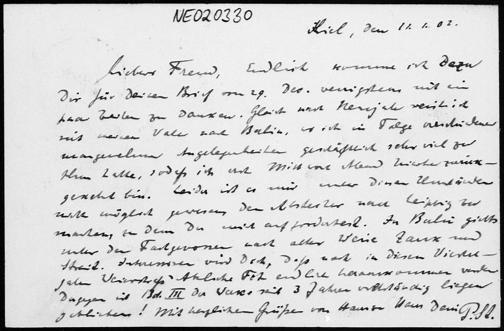 NE020330
Kiel, den 11.1.02.
Lieber Freund, Endlich komme ich dazu
Dir für Deinen Brief vom 29. Dec. wenigstens mit ein
paar Zeilen zu danken. Gleich nach Neujahr
mit meinem Vater nach Berlin, wo ich in Folge verschiedener
Angelegenheiten geschäftlich sehr viel zu
thun hatte, sodaß ich erst Mittwoch Abend hierher zurück-
gekehrt bin. Leider ist es mir unter diesen Umständen
nicht möglich gewesen den Abstecher nach Leipzig zu
machen, zu dem Du mich aufforderst. In Berlin giebts
unter den Fachgenossen nach alter Weise Zank und
Streit. Interessiren wird Dich, daß noch in diesem Viertel-
jahr Weierstraß' Fkt endlich herauskommen werden
Dagegen ist Bd. III der Werke seit 3 Jahren vollständig liegen
geblieben! Mit herzlichen Grüßen von Haus zu Haus Dein P. St.